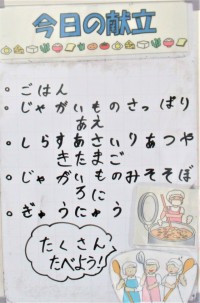 今日の献立
◦ ごはん
◦ じゃがいものさっぱり
あえ
◦ しらすあさいりあつや
きたまご
◦ じゃがいものみそそぼ
ろに
◦ ぎゅうにゅう
たくさん
たべよう!